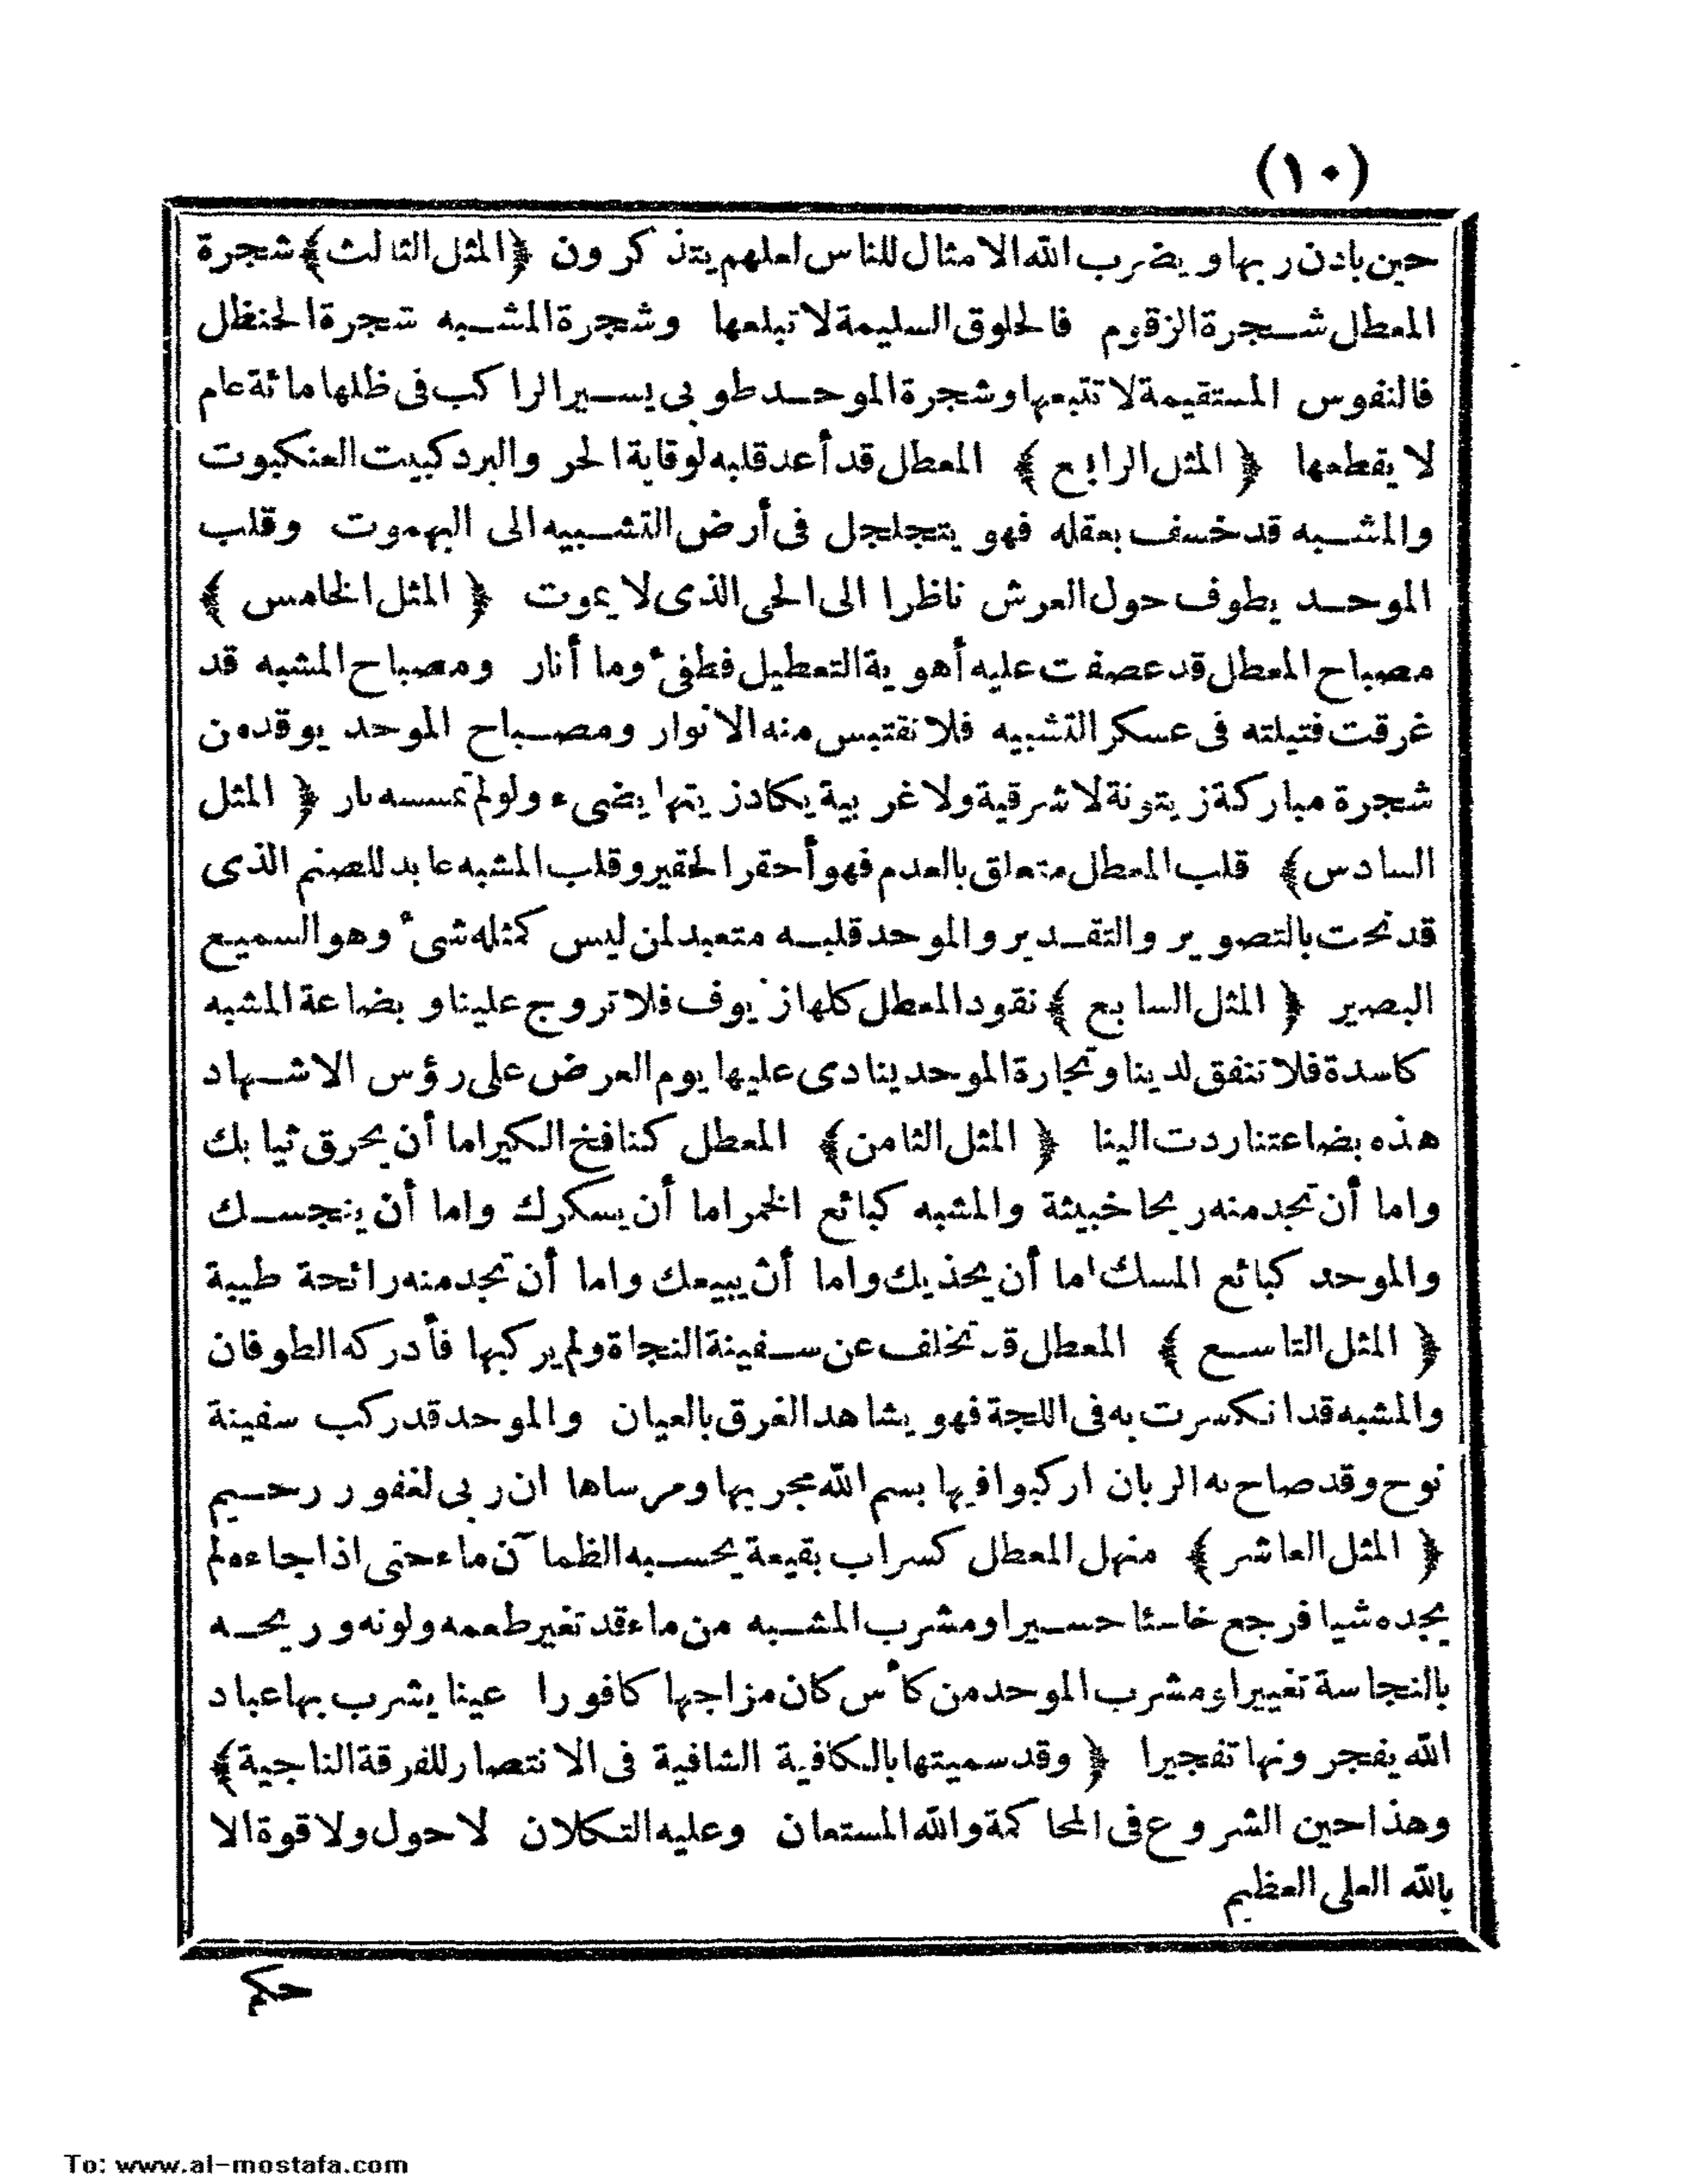 (١٠)
حين باذن ربها ويضرب الله الامثال للناس لعلهم يتذكرون ﴿المثل الثالث﴾ شجرة
المعطل شجرة الزقوم فالحلوق السليمة لا تبلعها وشجرة المشبه شجرة الحنظل
فالنفوس المستقيمة لا تتبعها وشجرة الموحد طوبى يسير الراكب فى ظلها مائة عام
لا يقطعها ﴿ المثل الرابع ﴾ المعطل قد أعد قلبه لوقاية الحر والبرد كبيت العنكبوت
والمشبه قد خسف بعقله فهو يتجلجل فى أرض التشبيه الى البهموت وقلب
الموحد يطوف حول العرش ناظرا الى الحى الذى لا يموت ﴿ المثل الخامس ﴾
مصباح المعطل قد عصفت عليه أهوية التعطيل فطفئ وما أنار ومصباح المشبه قد
غرقت فتيلته فى عسكر التشبيه فلا نقتبس منه الانوار ومصباح الموحد يوقد من
شجرة مباركة زيتونة لا شرقية ولا غربية يكاد زيتها يضىء ولو لم تمسسه نار ﴿ المثل
السادس﴾ قلب المعطل متعلق بالعدم فهو أحقر الحقير وقلب المشبه عابد للصنم الذى
قد نحت بالتصوير والتقدير والموحد قلبه متعبد لمن ليس كمثله شئ وهو السميع
البصير ﴿ المثل السابع ﴾ نقود المعطل كلها زيوف فلا تروج علينا وبضاعة المشبه
كاسدة فلا تنفق لدينا وتجارة الموحد ينادى عليها يوم العرض على رؤس الاشهاد
هذه بضاعتنا ردت الينا ﴿ المثل الثامن﴾ المعطل كنافخ الكير اما أن يحرق ثيابك
واما أن تجد منه ريحا خبيثة والمشبه كبائع الخمر اما أن يسكرك واما أن ينجسك
والموحد كبائع المسك اما أن يحذيك واما أن يبيعك واما أن تجد منه رائحة طيبة
﴿ المثل التاسع ﴾ المعطل قد تخلف عن سفينة النجاة ولم يركبها فأدركه الطوفان
والمشبه قد انكسرت به فى اللجة فهو يشاهد الغرق بالعيان والموحد قد ركب سفينة
نوح وقد صاح به الربان اركبوا فيها بسم الله مجريها ومرساها ان ربى لغفور رحيم
﴿ المثل العاشر ﴾ منهل المعطل كسراب بقيعة يحسبه الظمآن ماء حتى اذا جاءه لم
يجده شيا فرجع خاسئا حسيرا ومشرب المشبه من ماء قد تغير طعمه ولونه وريحه
بالنجاسة تغييرا ومشرب الموحد من كأس كان مزاجها كافورا عينا يشرب بها عباد
الله يفجرونها تفجيرا ﴿ وقد سميتها بالكافية الشافية فى الانتصار للفرقة الناجية﴾
وهذا حين الشروع فى المحاكمة والله المستعان وعليه التكلان لا حول ولا قوة الا
بالله العلى العظيم
حكم
To: www.al-mostafa.com